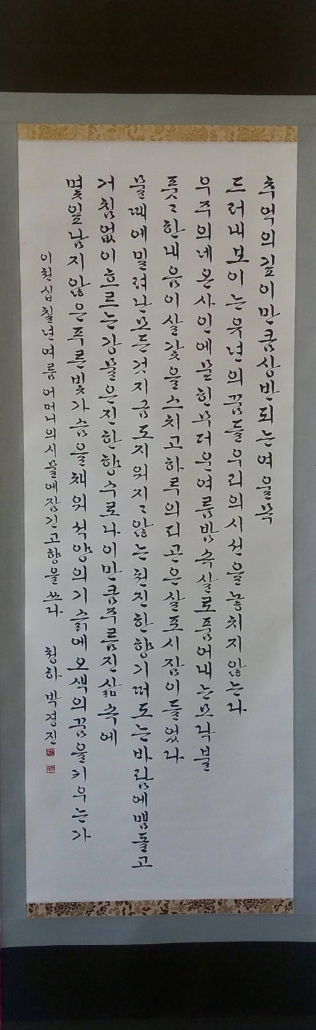 추억의 깊이만큼 상반되는 여울목
드러내 보이는 유년의 꿈들 우리의 시선을 놓치지 않는다
우주의 네온사인에 묻힌 무더운 여름밤 속살로 품어내는 모닥불
풋〻한 내음이 살갗을 스치고 하루의 피곤은 살포시 잠이 들었다
물때에 밀려난 모든 것 지금도 지워지〻 않는 천진한 향기 떠도는 바람에 맴돌고
거침없이 흐르는 강물은 진한 향수로 나이만큼 주름진 삶 속에
몇 잎 남지 않은 푸른 빛 가슴을 채워 석양의 기슭에 오색의 꿈을 키우는가
이천십칠년 여름 어머니의 시 물에 잠긴 고향을 쓰다 청하 박경진